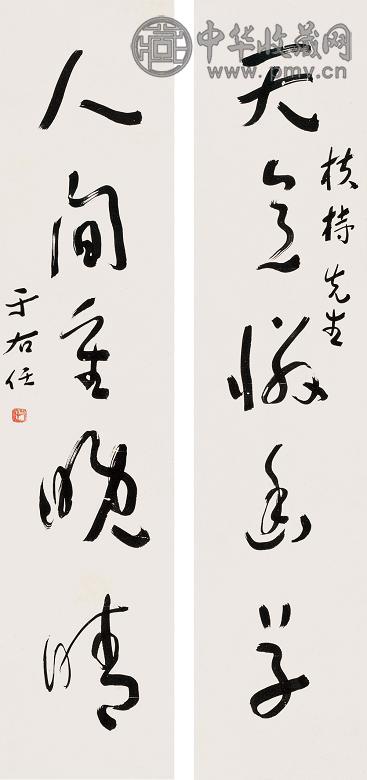 中华收藏网
www.pmv.cn
天意憐幽草
扶持先生
人間重晚晴
于右任